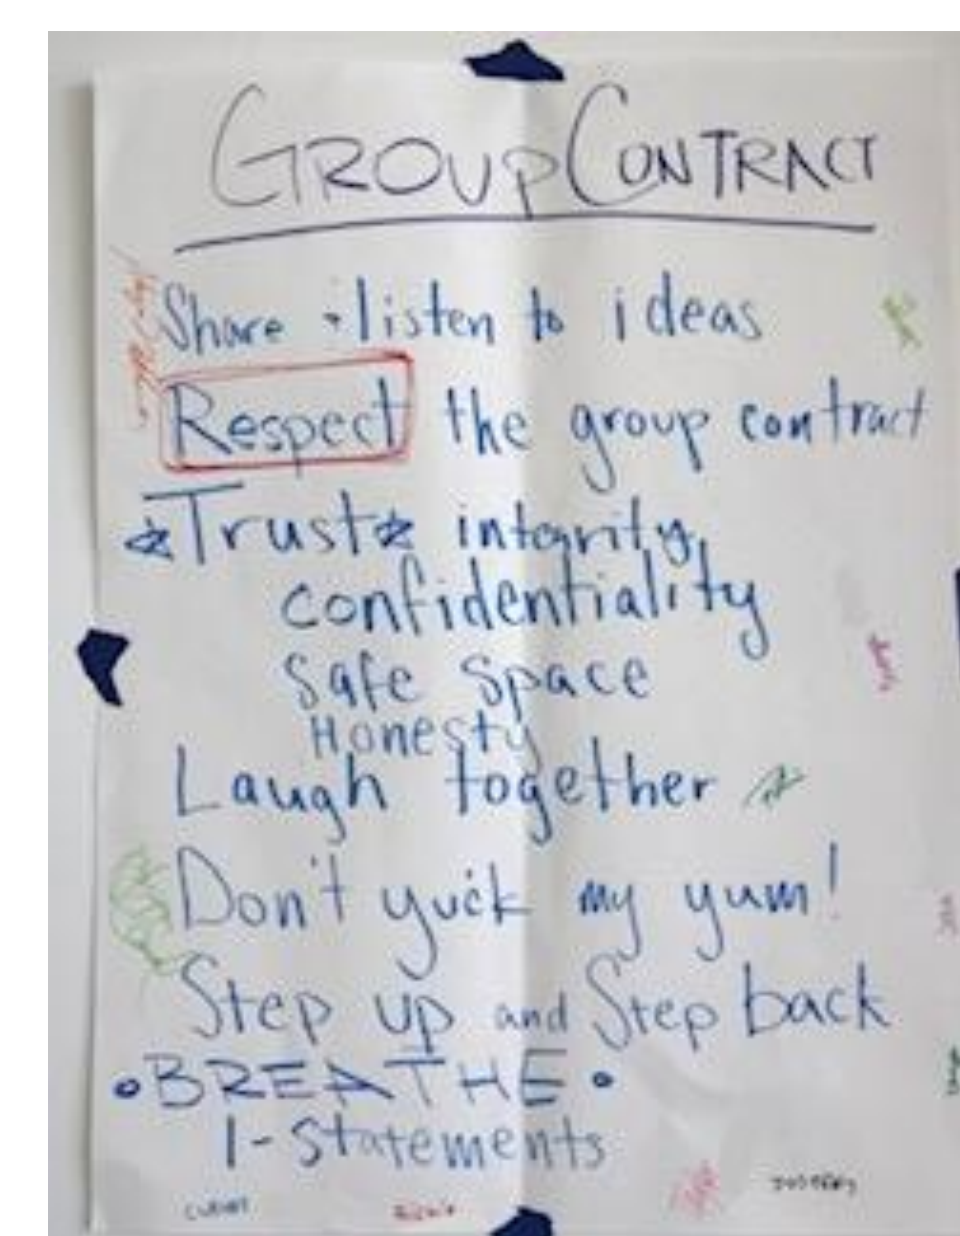 GROUP CONTRACT
Share + listen to ideas
Respect the group contract
☆Trust☆ integrity,
confidentiality
Safe Space
Honesty
Laugh together
Don't yuck my yum!
Step up and Step back
•BREATHE•
I-Statements